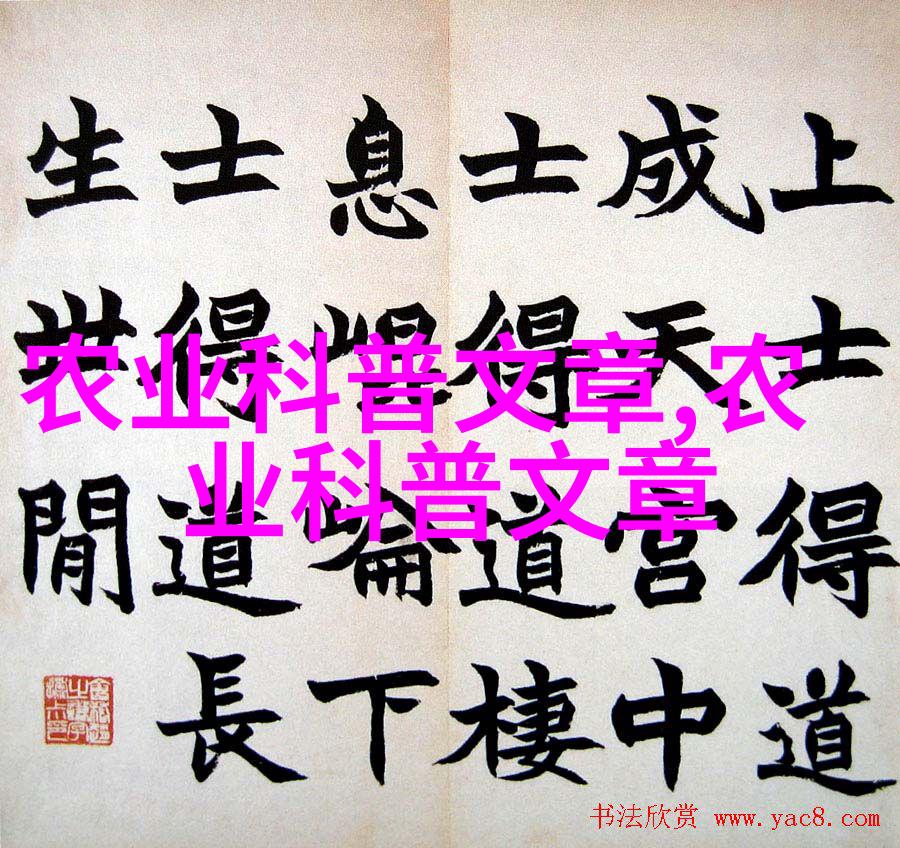 上士得道
成天官中
士得道棲
息崐崘下
士得道長
生世閒
农业科普文章,农
业科普文章
书法欣赏 www.yac8.com